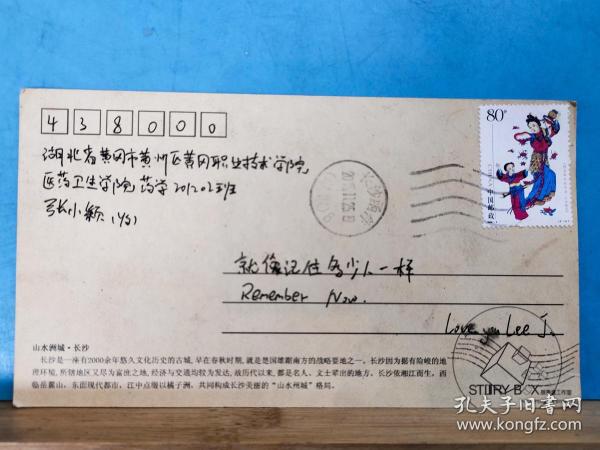 438000
湖北省黄冈市黄州区黄冈职业技术学院
医药卫生学院药学201202班
张小颖(收)
80分
中国邮政
就像记住多少人一样
Remember Now.
Love you Lee J.
山水洲城·长沙
长沙是一座有2000余年悠久文化历史的古城,早在春秋时期,就是楚国雄霸南方的战略要地之一。长沙因为据有险峻的地
理环境,所辖地区又尽为富庶之地,经济与交通均较为发达,故历代以来,都是名人、文士辈出的地方。长沙依湘江而生,西
临岳麓山,东面现代都市,江中点缀以橘子洲,共同构成长沙美丽的“山水洲城”格局。
STORY BOX
孔夫子旧书网
www.kongfz.com